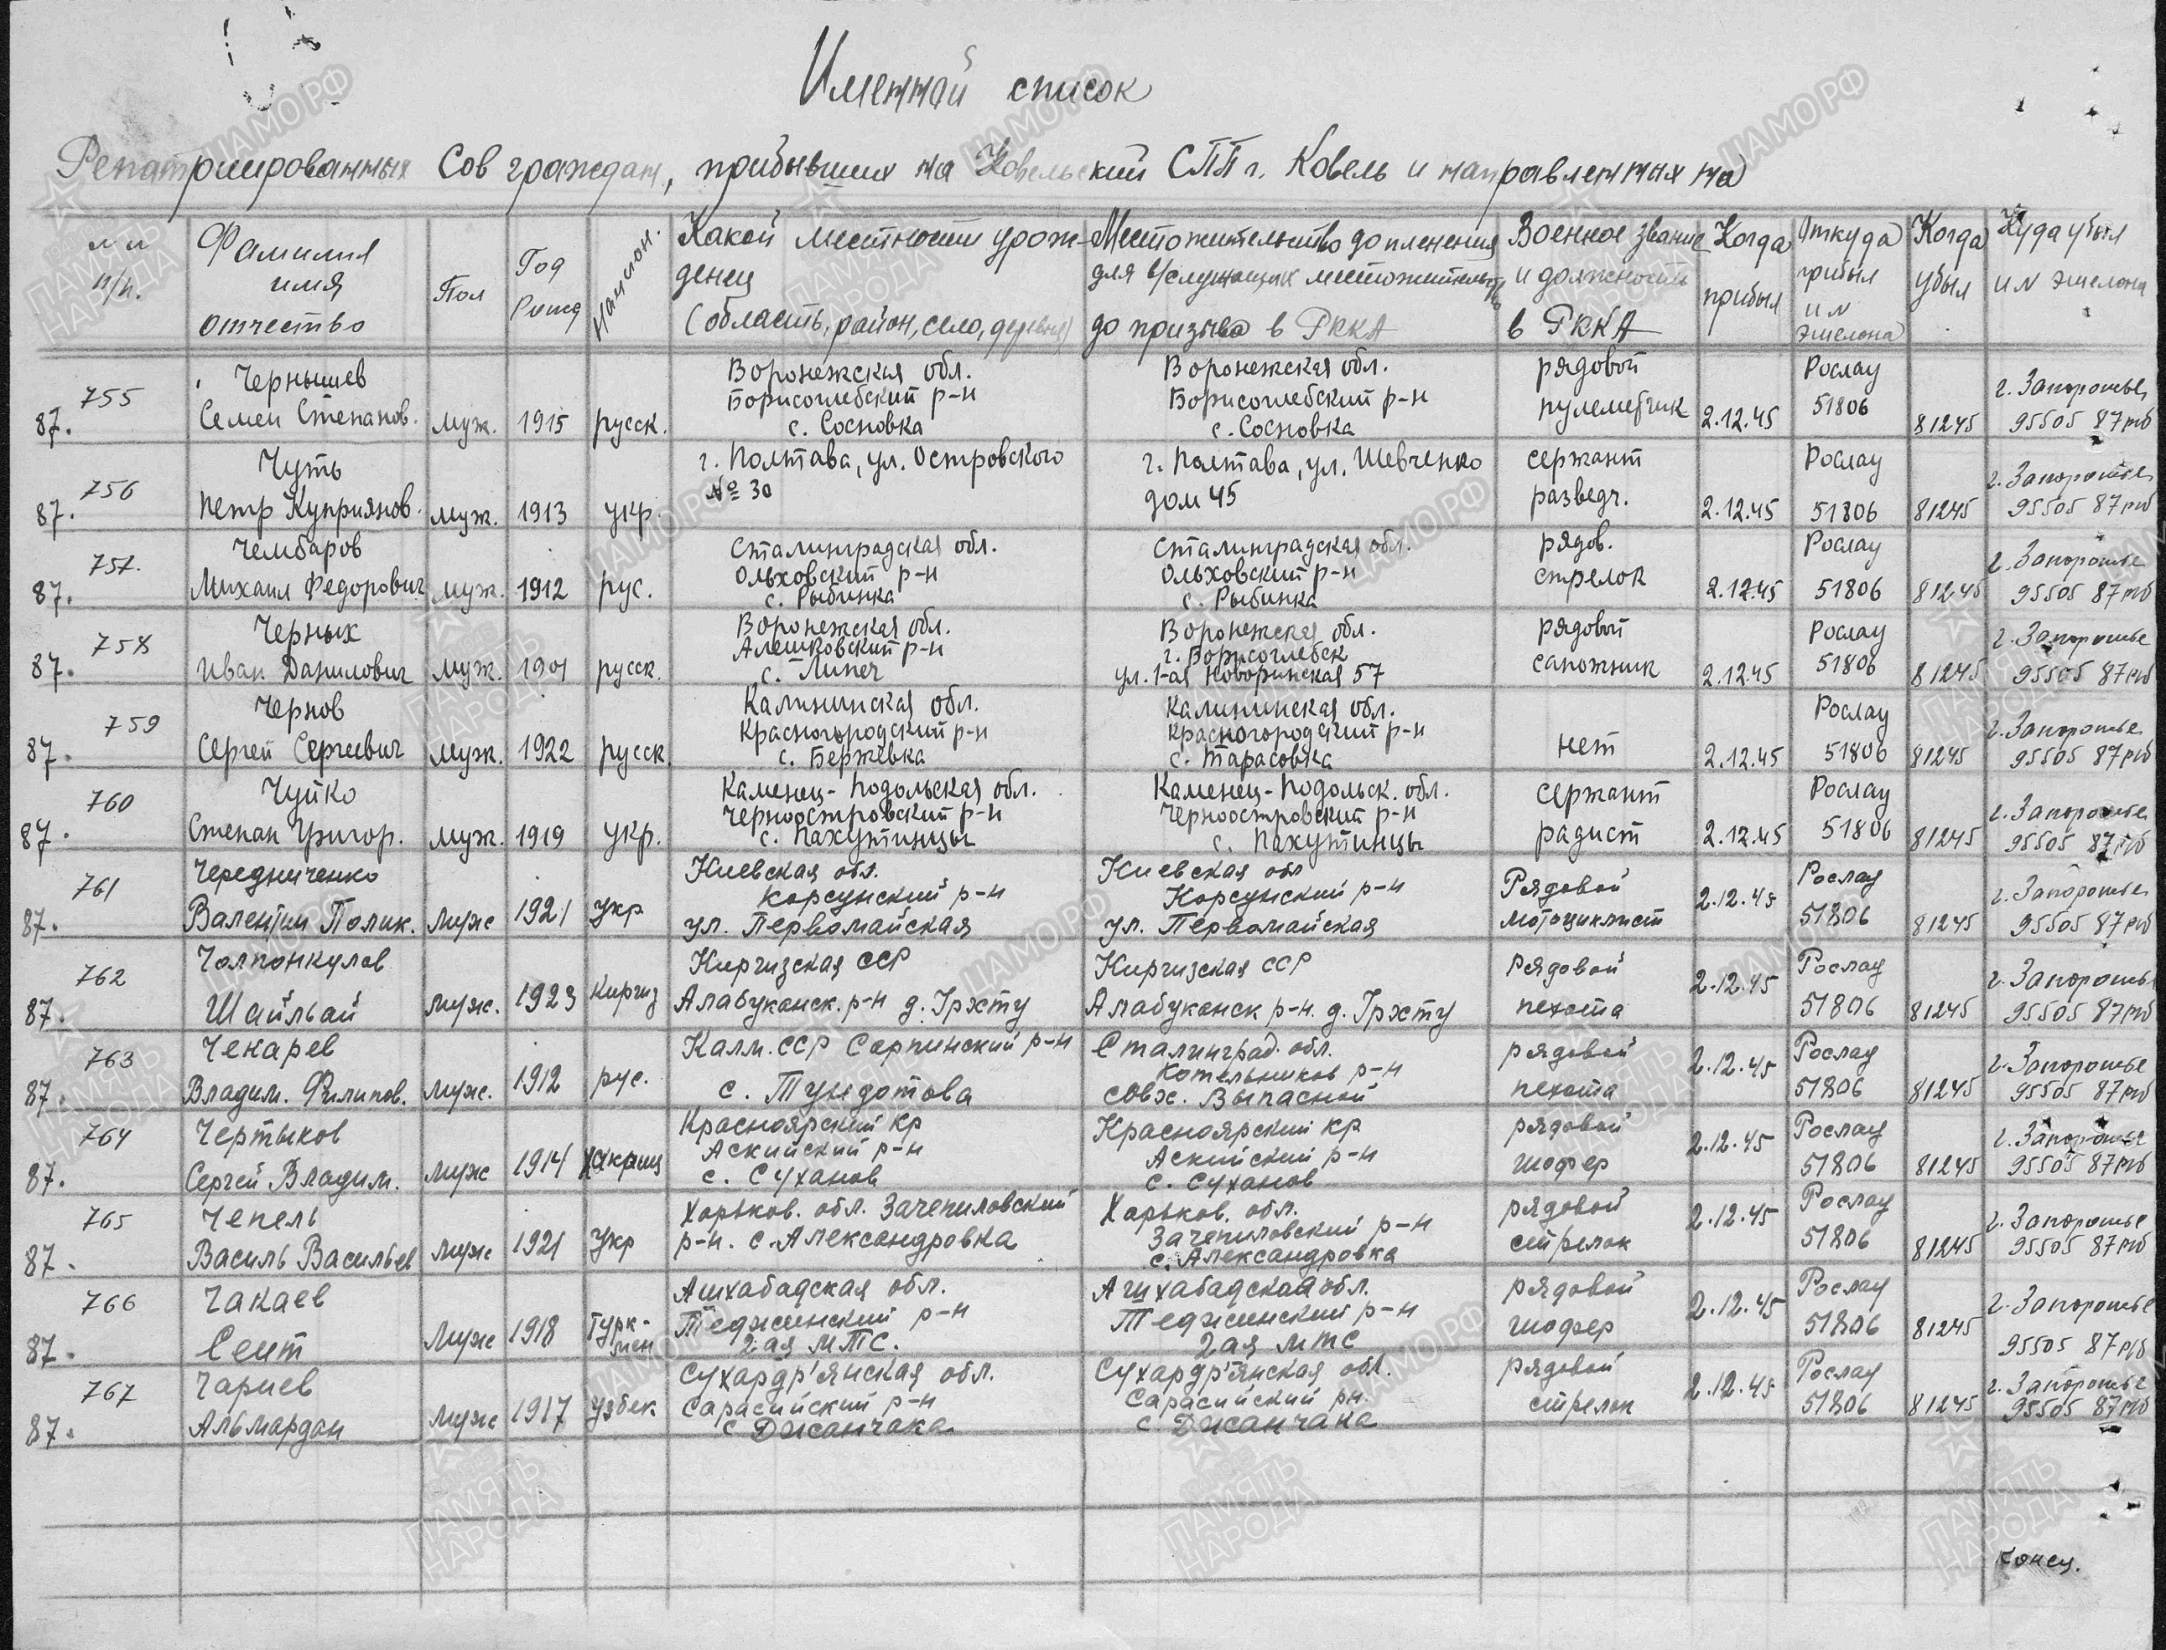 Именной список
Репатриированных Сов граждан, прибывших на Ковельский СПП г. Ковель и направленных на
№ №
п/п.
Фамилия
имя
отчество
Пол
Год
Рожд
Национ.
Какой местности урож-
денец
(область, район, село, деревня)
Местожительство до пленения
для в/служащих местожительство
до призыва в РККА
Военное звание
и должность
в РККА
Когда
прибыл
Откуда
прибыл
и №
эшелона
Когда
убыл
Куда убыл
и № эшелона
755
87.
Чернышев
Семен Степанов.
муж.
1915
русск.
Воронежская обл.
Борисоглебский р-н
с. Сосновка
Воронежская обл.
Борисоглебский р-н
с. Сосновка
рядовой
пулеметчик
2.12.45
Рослау
51806
81245
г. Запорожье
95505 87рб
756
87.
Чуть
Петр Куприянов.
муж.
1913
укр.
г. Полтава, ул. Островского
№ 30
г. Полтава, ул. Шевченко
дом 45
сержант
разведч.
2.12.45
Рослау
51806
81245
г. Запорожье
95505 87рб
757.
87.
Чембаров
Михаил Федорович
муж.
1912
рус.
Сталинградская обл.
Ольховский р-н
с. Рыбинка
Сталинградская обл.
Ольховский р-н
с. Рыбинка
рядов.
стрелок
2.12.45
Рослау
51806
81245
г. Запорожье
95505 87рб
758
87.
Черных
Иван Данилович
муж.
1901
русск.
Воронежская обл.
Алешковский р-н
с. Липеч
Воронежская обл.
г. Борисоглебск
ул. 1-ая 57
рядовой
сапожник
2.12.45
Рослау
51806
81245
г. Запорожье
95505 87рб
759
87.
Чернов
Сергей Сергеевич
муж.
1922
русск.
Калининская обл.
Красногородский р-н
с. Бержевка
Калининская обл.
Красногородский р-н
с. Тарасовка
нет
2.12.45
Рослау
51806
81245
г. Запорожье
95505 87рб
760
87.
Чуйко
Степан Григор.
муж.
1919
укр.
Каменец-Подольская обл.
Черноостровский р-н
с. Пахутинцы
Каменец-Подольск. обл.
Черноостровский р-н
с. Пахутинцы
сержант
радист
2.12.45
Рослау
51806
81245
г. Запорожье
95505 87рб
761
87.
Чередниченко
Валентин Полик.
Муж
1921
Укр
Киевская обл.
Корсунский р-н
ул. Первомайская
Киевская обл
Корсунский р-н
ул. Первомайская
Рядовой
мотоциклист
2.12.45
Рослау
51806
81245
г. Запорожье
95505 87рб
762
87.
Чолпонкулов
Шайльай
Муж.
1923
Киргиз
Киргизская ССР
Алабуканск. р-н д. Грхту
Киргизская ССР
Алабуканск р-н. д. Грхту
Рядовой
пехота
2.12.45
Рослау
51806
81245
г. Запорожье
95505 87рб
763
87.
Чекарев
Владим. Филипов.
Муж.
1912
рус.
Калм. ССР Сарпинский р-н
с. Тундотова
Сталинград. обл.
Котельников р-н
совх. Выпасной
рядовой
пехота
2.12.45
Рослау
51806
81245
г. Запорожье
95505 87рб
764
87.
Чертыков
Сергей Владим.
Муж
1914
Красноярский кр
Аскийский р-н
с. Суханов
Красноярский кр
Аскийский р-н
с. Суханов
рядовой
шофер
2.12.45
Рослау
51806
81245
г. Запорожье
95505 87рб
765
87.
Чепель
Василь Васильев
Муж
1921
Укр
Харьков. обл. Зачепиловский
р-н. с. Александровка
Харьков. обл.
Зачепиловский р-н
с. Александровка
рядовой
стрелок
2.12.45
Рослау
51806
81245
г. Запорожье
95505 87рб
766
87.
Чакаев
Сеит
Муж
1918
Турк-
мен
Ашхабадская обл.
Теджинский р-н
2 ая МТС.
Ашхабадская обл.
Теджинский р-н
2 ая МТС
рядовой
шофер
2.12.45
Рослау
51806
81245
г. Запорожье
95505 87рб
767
87.
Чариев
Альмардан
Муж
1917
узбек
Сухардр'янская обл.
Сарасийский р-н
с Джанчака
Сухардр'янская обл.
Сарасийский рн.
с. Джанчака
рядовой
стрелок
2.12.45
Рослау
51806
81245
г. Запорожье
95505 87рб
конец.